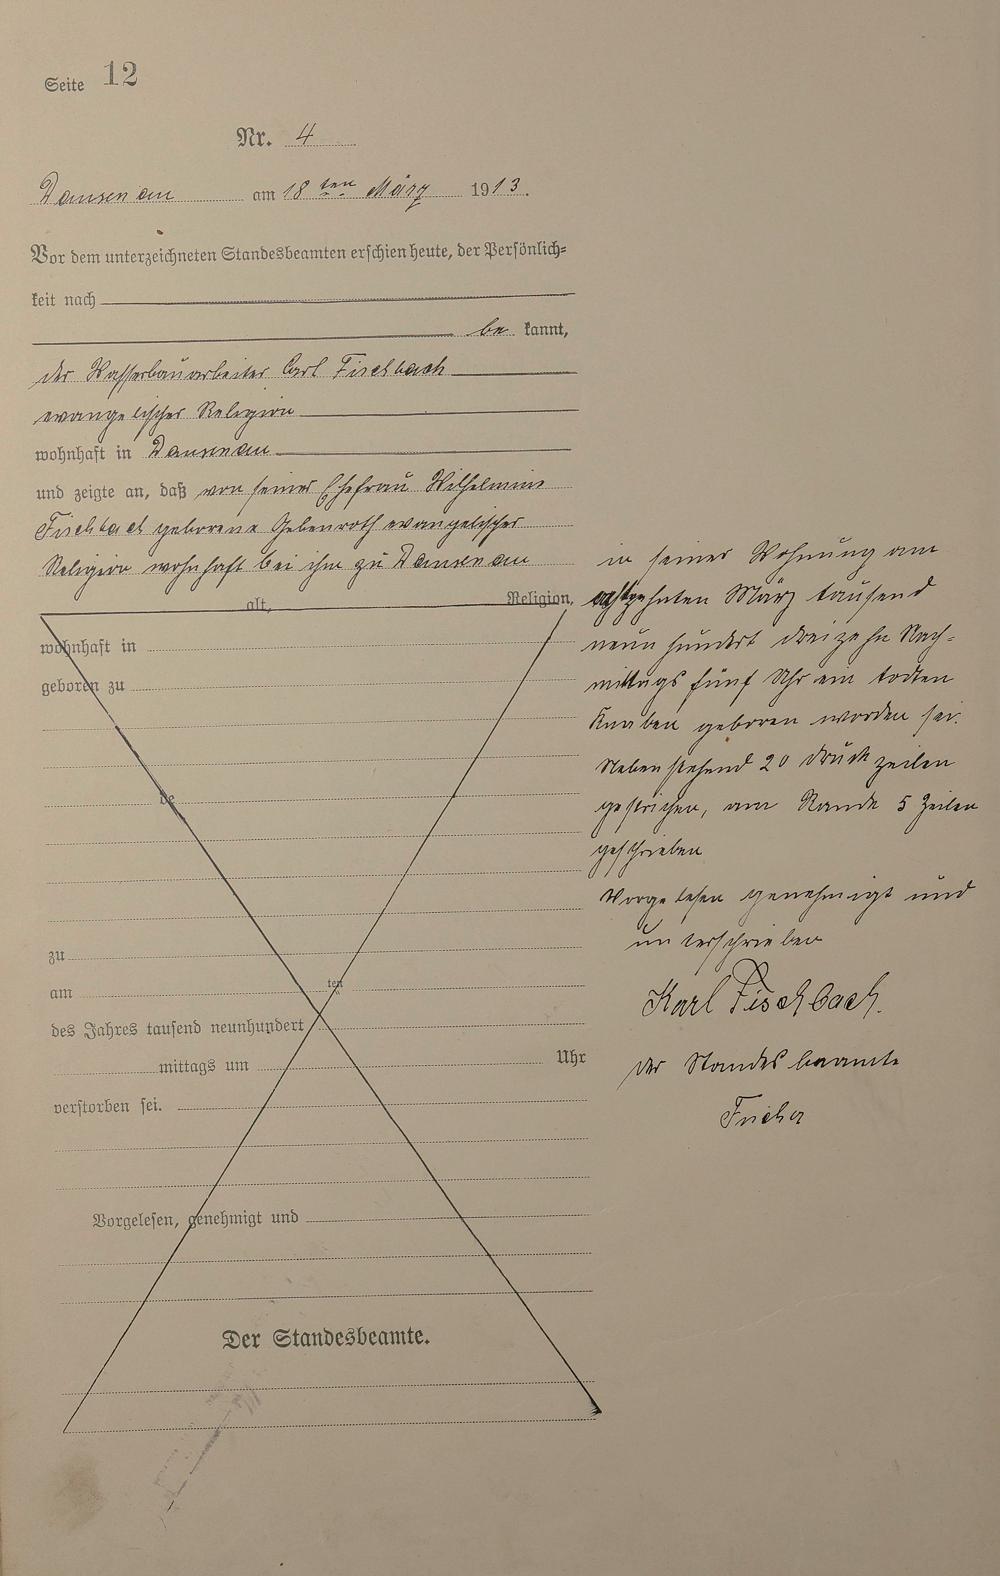 Seite 12
Nr. 4
Dausenau am 18ten März 1913.
Vor dem unterzeichneten Standesbeamten erschien heute, der Persönlich-
keit nach
be kannt,
der Wasserbauarbeiter Carl Fischbach
evangelischer Religion
wohnhaft in Dausenau
und zeigte an, daß von seiner Ehefrau Wilhelmine
Fischbach geborene Gebenroth evangelischer
Religion wohnhaft bei ihm zu Dausenau
alt, Religion,
wohnhaft in
geboren zu
de
zu
am ten
des Jahres tausend neunhundert
mittags um Uhr
verstorben sei.
Vorgelesen, genehmigt und
Der Standesbeamte.
in seiner Wohnung am
achtzehnten März tausend
neun hundert dreizehn Nach-
mittags fünf Uhr ein todten
Knaben geboren worden sei.
Nebenstehend 20 Druckzeilen
gestrichen, am Rande 5 Zeilen
geschrieben
Vorgelesen genehmigt und
unterschrieben
Karl Fischbach.
der Standesbeamte